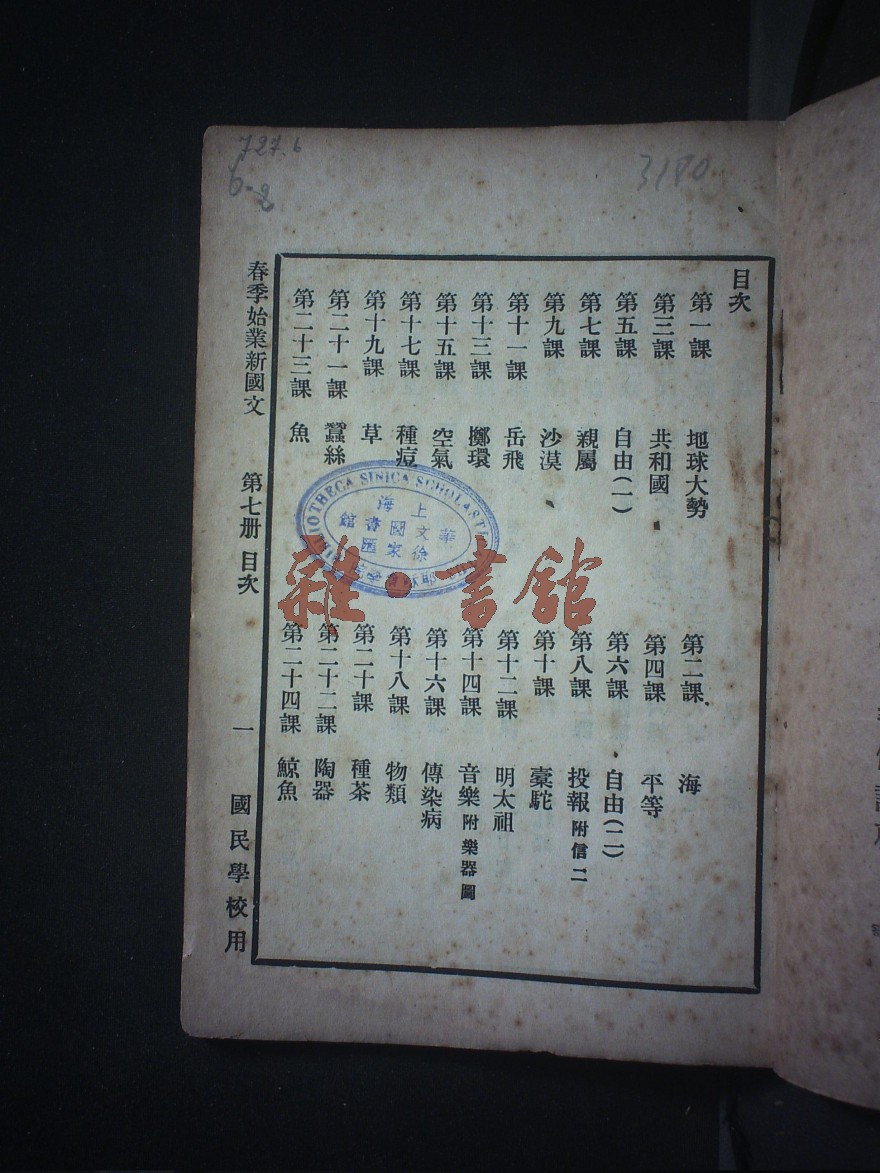 727.6
6-8
3180
目次
第一課 地球大勢 第二課 海
第三課 共和國 第四課 平等
第五課 自由(一) 第六課 自由(二)
第七課 親屬 第八課 投報 附信二
第九課 沙漠 第十課 橐駝
第十一課 岳飛 第十二課 明太祖
第十三課 擲環 第十四課 音樂 附樂器圖
第十五課 空氣 第十六課 傳染病
第十七課 種痘 第十八課 物類
第十九課 草 第二十課 種茶
第二十一課 蠶絲 第二十二課 陶器
第二十三課 魚 第二十四課 鯨魚
春季始業新國文 第七册 目次 一 國民學校用
BIBLIOTHECA SINICA SCHOLAST
上海
華文圖書館
徐家匯
雜·書館